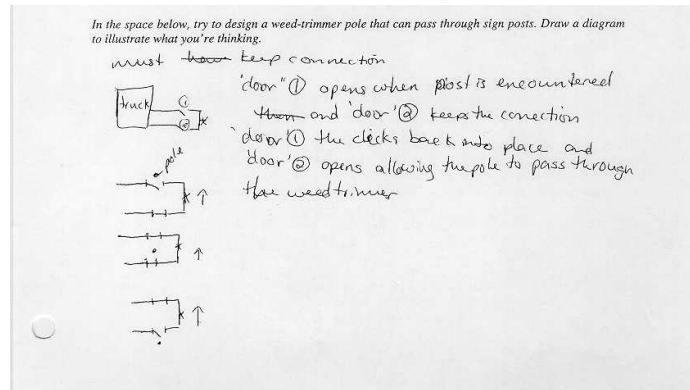 In the space below, try to design a weed-trimmer pole that can pass through sign posts. Draw a diagram
to illustrate what you're thinking.
must have keep connection
'door" ① opens when post is encountered
truck ① then and 'door' ② keeps the conection
②
'door' ① the clicks back into place and
'door' ② opens allowing the pole to pass through
pole
the weedtrimmer